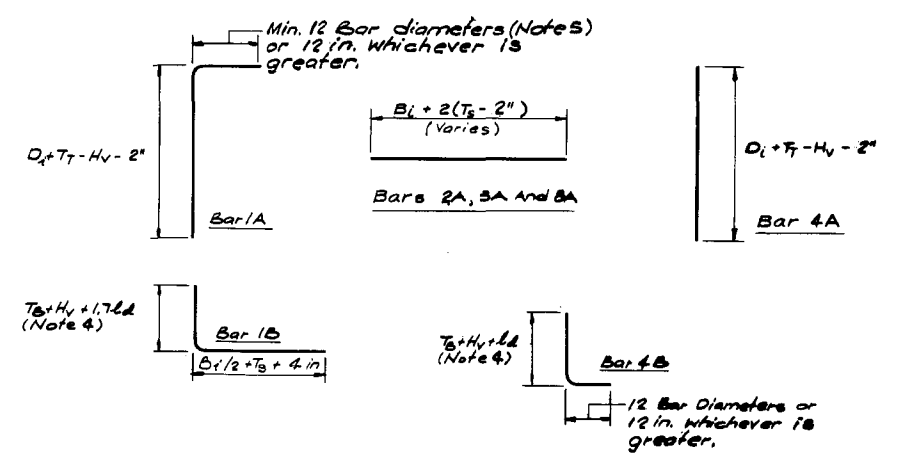 Min. 12 Bar diameters (Note 5)
or 12 in. whichever is
greater.
Di + TT - HV - 2"
Bar 1A
Bi + 2(TS - 2")
(Varies)
Bars 2A, 3A And 8A
Di + TT - HV - 2"
Bar 4A
TB + HV + 1.7 ld
(Note 4)
Bar 1B
Bi/2 + TS + 4 in
TB + HV + ld
(Note 4)
Bar 4B
12 Bar Diameters or
12 in. whichever is
greater.